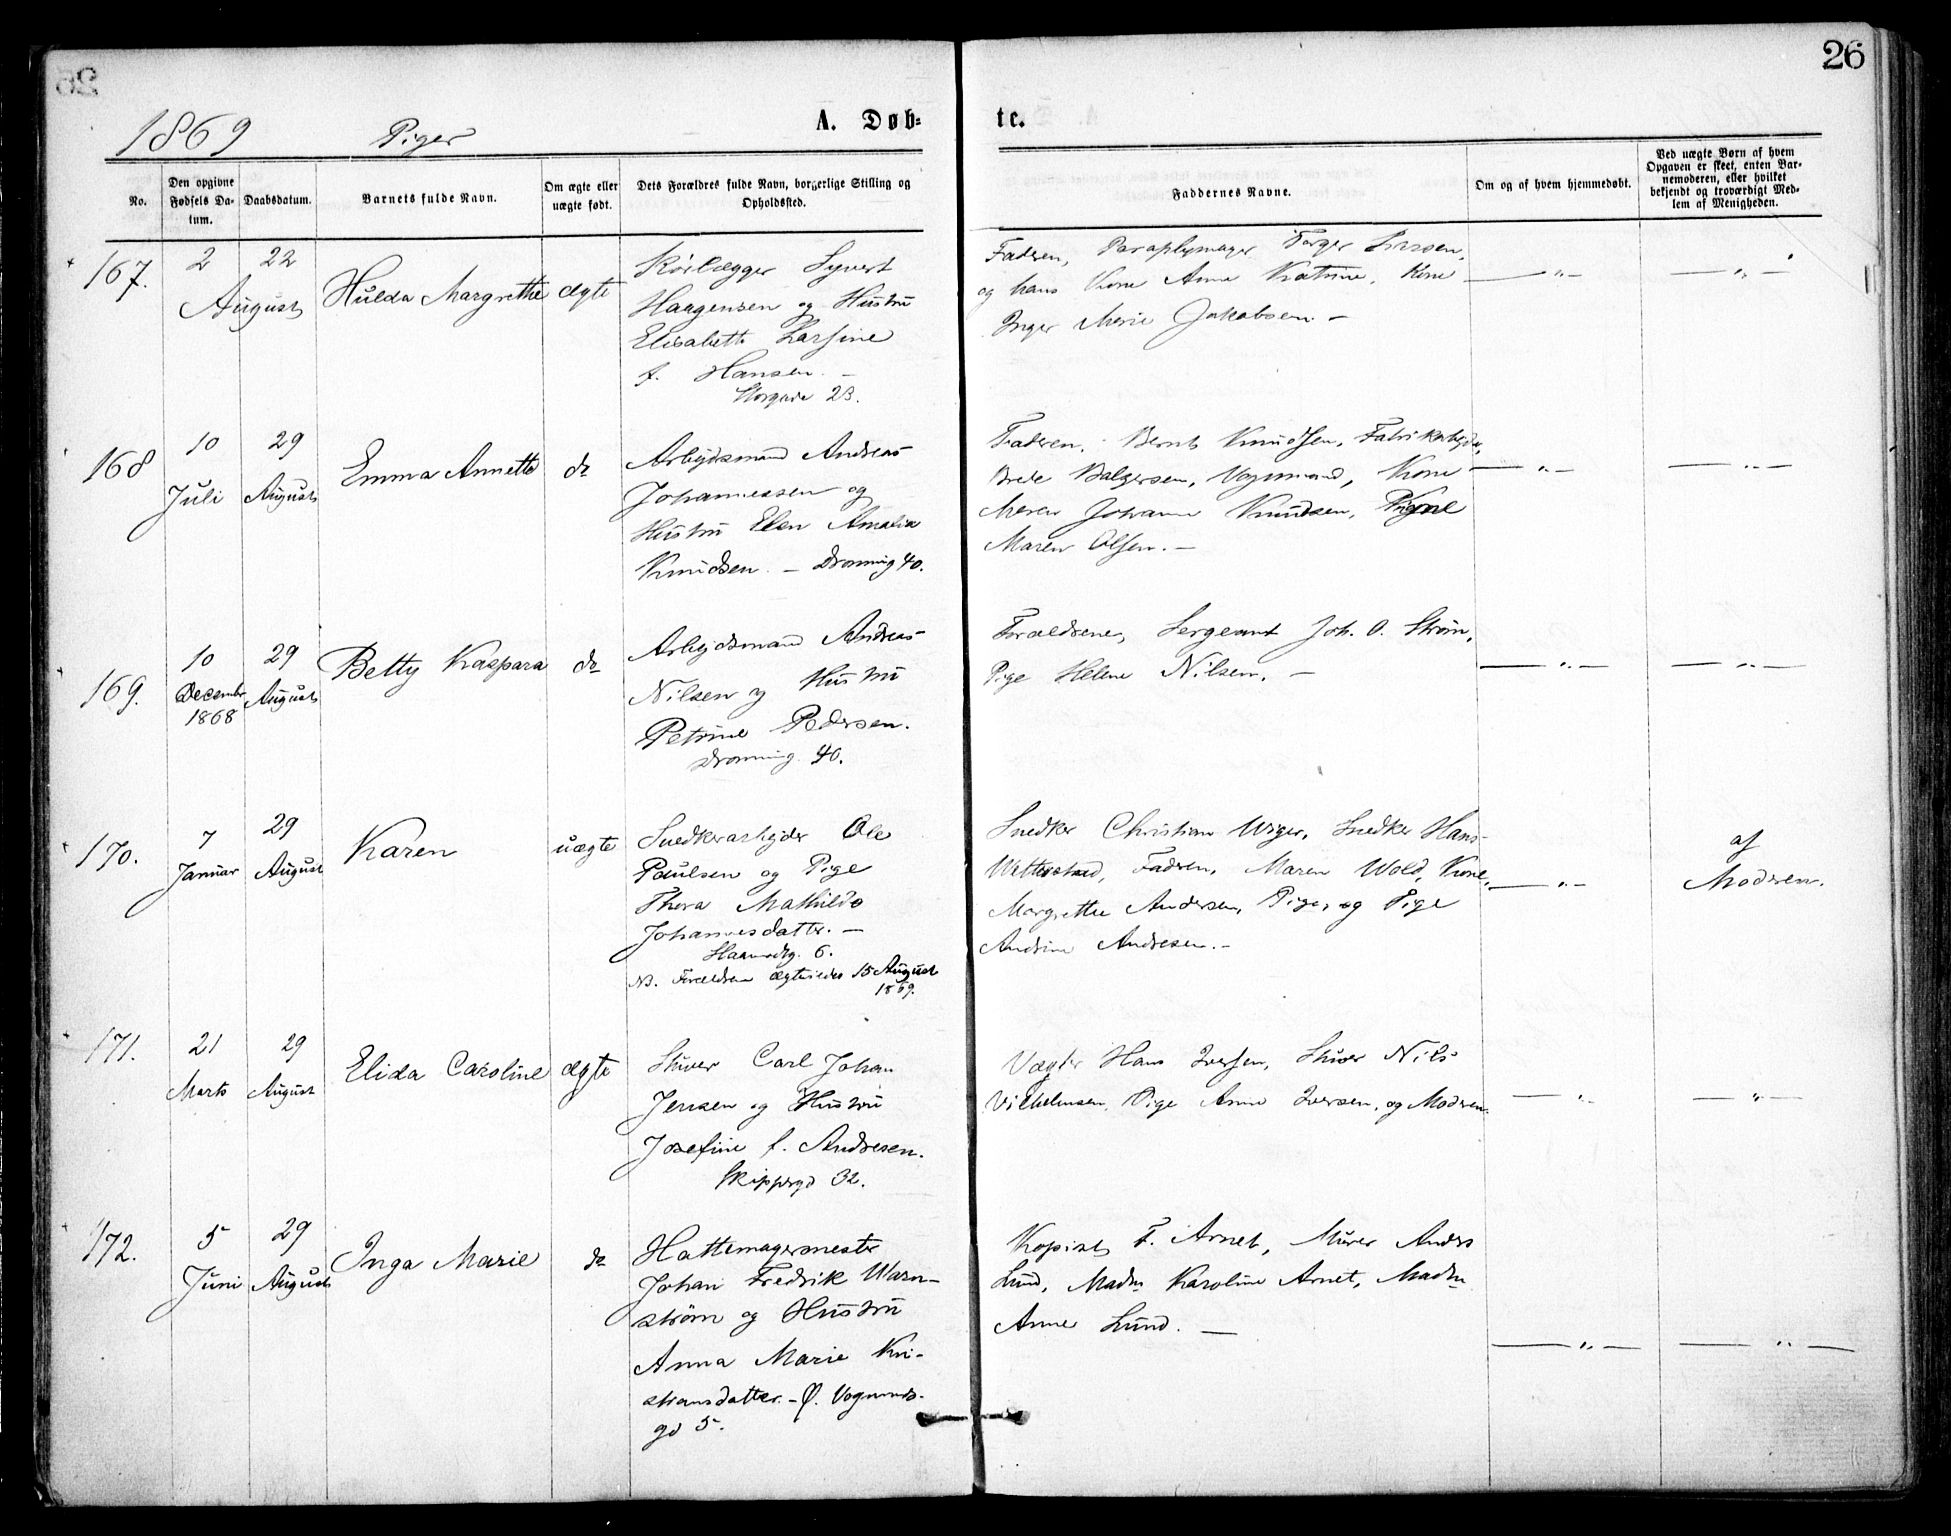 26
1869 Piger A. Døb= te.
No.
Den opgivne Fødsels Da= tum.
Daabsdatum.
Barnets fulde Navn.
Om ægte eller uægte født.
Dets Forældres fulde Navn, borgerlige Stilling og Opholdssted.
Faddernes Navne.
Om og af hvem hjemmedøbt.
Ved uægte Børn af hvem
Opgaven er skeet, enten Bar=
nemoderen, eller hvilket
bekjendt og troværdigt Med=
lem af Menigheden.
167. 2 22
August
Hulda Margrethe ægte
Syvert
Haagensen og Hustru
Elisabeth Larsine
f. Hansen. –
Storgade 23.
Faderen, Paraplymager Larsen,
og hans Kone Anne Katrine, Kone
Inger Marie Jakobsen. –
— " — — " —
168 10 29
Juli August
Emma Annette do
Arbeidsmand Andreas
Johannessen og
Hustru Elen Amalia
Knudsen. – Dronning 40.
Faderen, Bernt Knudsen,
Brede Vognmand, Kone
Maren Johanne Knudsen, Pige
Maren Olsen. –
— " — — " —
169. 10 29
Decembr August
1868
Betty Kaspara do
Arbeidsmand Andreas
Nilsen og Hustru
Petrine Pedersen.
Dronning. 40.
Forældrene, Sergeant Joh. O. Strøm,
Pige Helene Nilsen. –
— " — — " —
170. 7 29
Januar August
Karen uægte
Snedkerarbeider Ole
Paulsen og Pige
Thora Mathilde
Johannesdatter. –
6.
NB. Forældrene ægteviedes 15 August
1869.
Snedker Christian Wiger, Snedker Hans
Faderen, Maren Wold, Kone,
Margrethe Andersen, Pige, og Pige
Andrine Andresen. –
— " —
af
Moderen.
171. 21 29
Marts August
Elida Caroline ægte
Carl Johan
Jensen og Hustru
Josefine f. Andresen.
Skippergd 32.
Vægter Hans Iversen, Nils
Vilhelmsen, Pige Anne Iversen, og Moderen.
— " — — " —
172. 5 29
Juni August
Inga Marie do
Hattemagermester
Johan Fredrik Warn–
strøm og Hustru
Anna Marie Kri–
stiansdatter. – Ø. Vognmds–
gd 5.
Kopist F. Arnet, Murer Anders
Lund, Madm Karoline Arnet, Madm
Anne Lund. —
— " — — " —